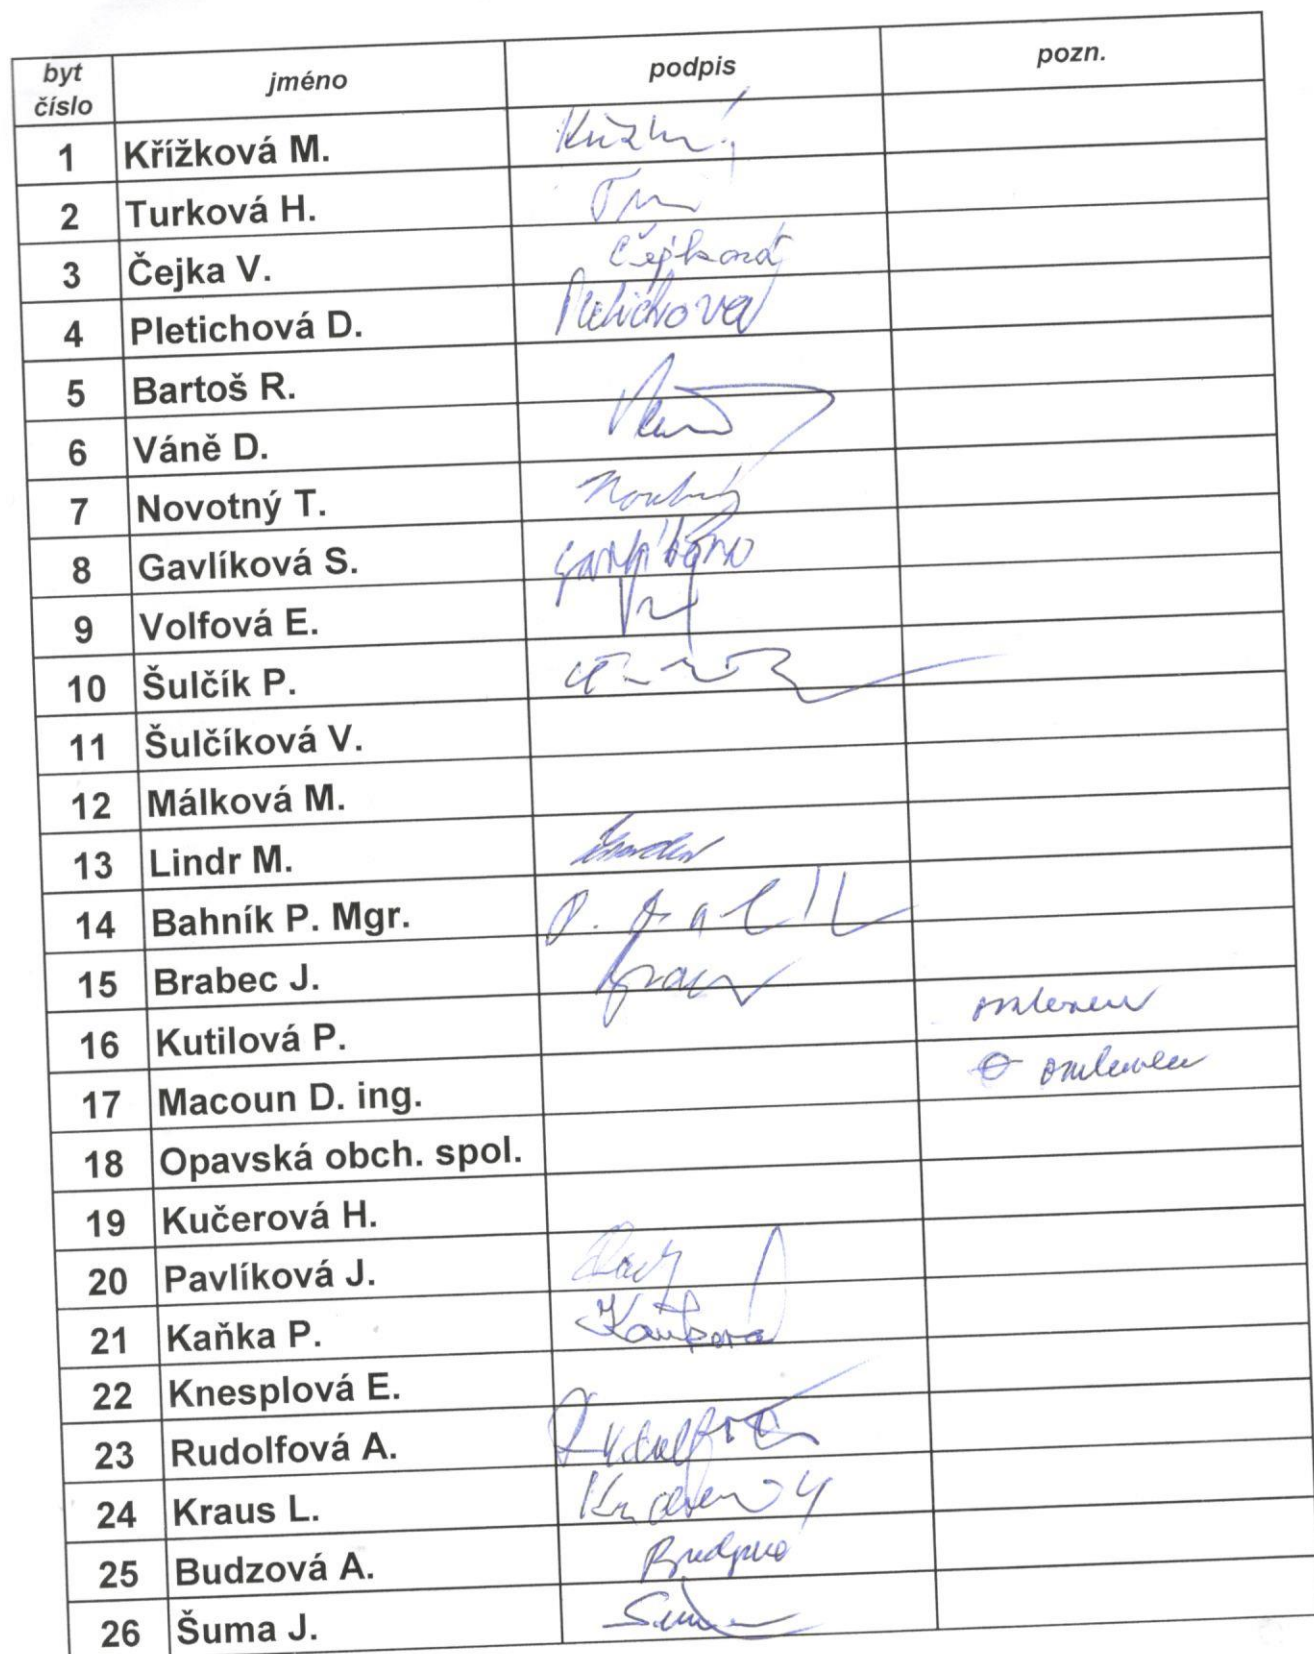 byt číslo jméno podpis pozn.
1 Křížková M.
2 Turková H.
3 Čejka V. Čejková
4 Pletichová D. Pletichová
5 Bartoš R.
6 Váně D.
7 Novotný T.
8 Gavlíková S.
9 Volfová E.
10 Šulčík P.
11 Šulčíková V.
12 Málková M.
13 Lindr M.
14 Bahník P. Mgr.
15 Brabec J.
16 Kutilová P. omluven
17 Macoun D. ing. omluven
18 Opavská obch. spol.
19 Kučerová H.
20 Pavlíková J.
21 Kaňka P. Kaňková
22 Knesplová E.
23 Rudolfová A.
24 Kraus L.
25 Budzová A.
26 Šuma J.